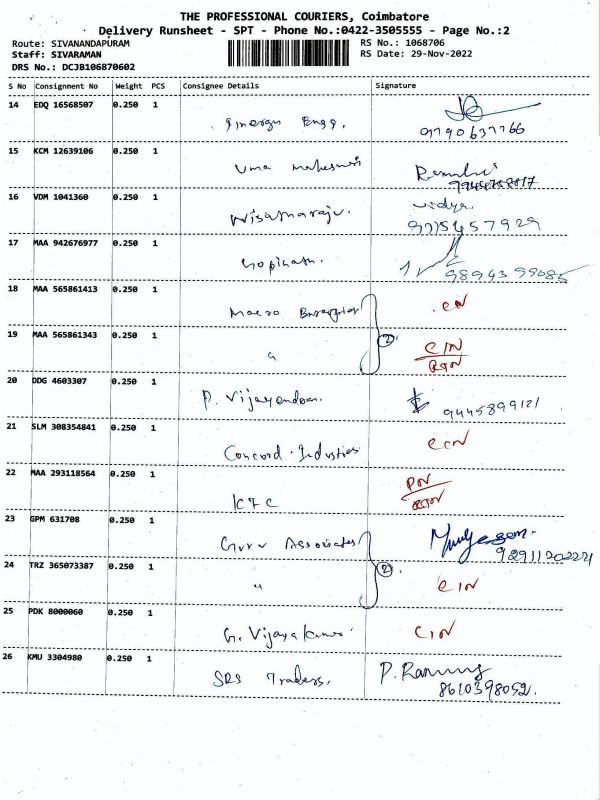 THE PROFESSIONAL COURIERS, Coimbatore
Delivery Runsheet - SPT - Phone No.:0422-3505555 - Page No.:2
Route: SIVANANDAPURAM RS No.: 1068706
Staff: SIVARAMAN RS Date: 29-Nov-2022
DRS No.: DCJB106870602
S No Consignment No Weight PCS Consignee Details Signature
14 EDQ 16568507 0.250 1
Engg.
9790637766
15 KCM 12639106 0.250 1
Uma Maheswari
16 VDM 1041360 0.250 1 vidya
9715457929
17 MAA 942676977 0.250 1
Gopinath.
18 MAA 565861413 0.250 1
Macro
19 MAA 565861343 0.250 1 CIN
" 2
20 DDG 4603307 0.250 1
P. Vijayendran. 9445899121
21 SLM 308354841 0.250 1
Concord Industries
22 MAA 293118564 0.250 1
KFC
23 GPM 631708 0.250 1
Guru Associates
24 TRZ 365073387 0.250 1
" 2 CIN
25 PDK 8000060 0.250 1
G. Vijayakumar CIN
26 KMU 3304980 0.250 1
SRS Traders. 8610398052.